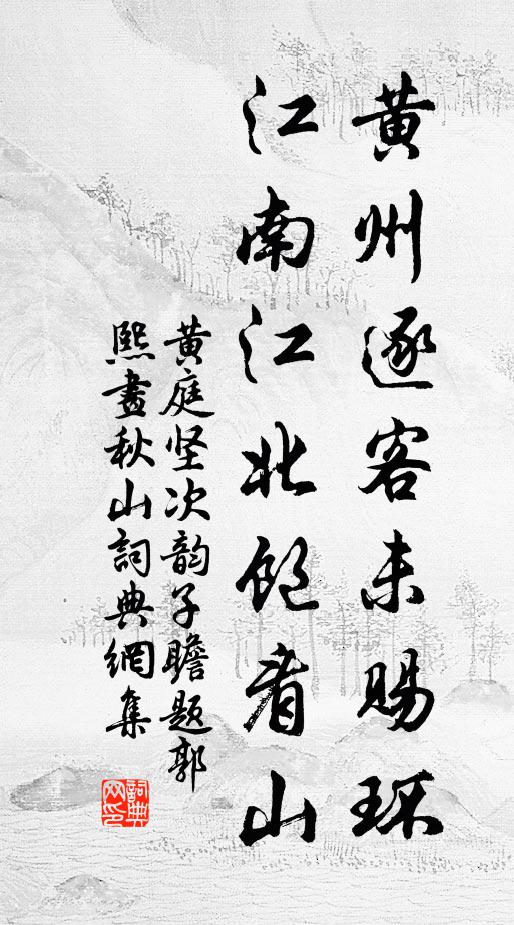 黄州逐客未赐环
江南江北饱看山
黄庭坚次韵子瞻题郭
熙畫秋山詞典網集
詞典网印